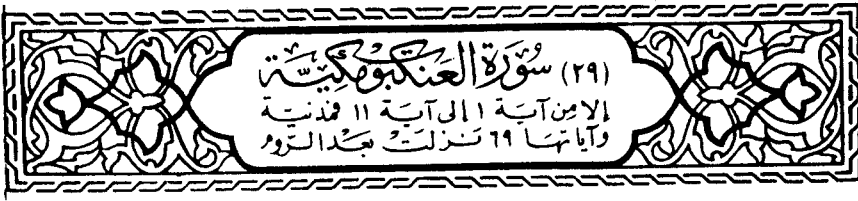 (٢٩) سُورَة العنكبوت مكيَّة
إلا من آية ١ إلى آية ١١ فمدنية
وآياتها ٦٩ نزلت بعد الروم